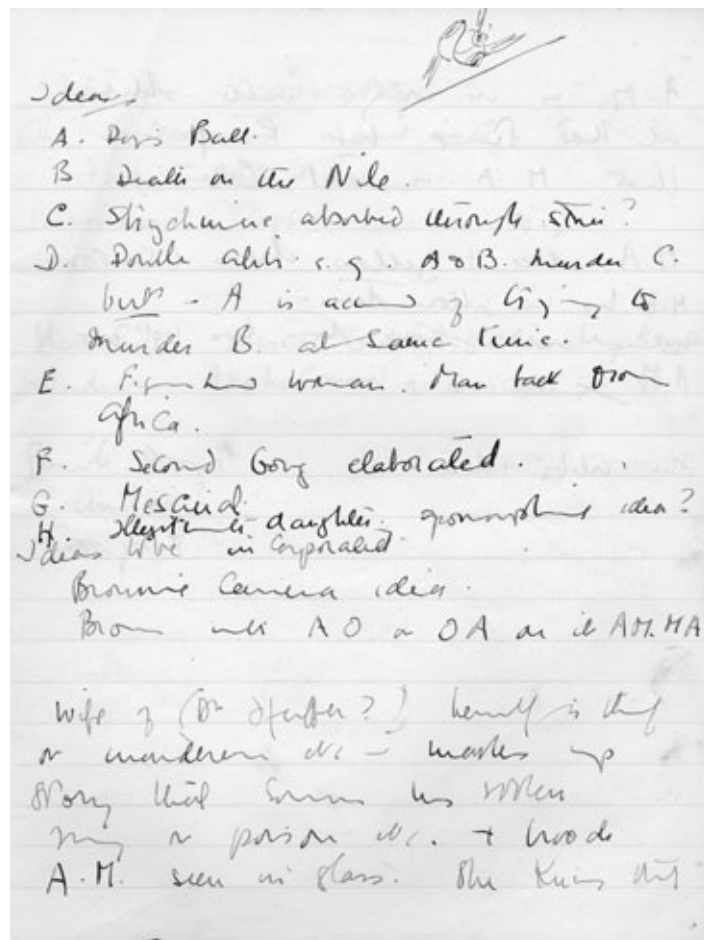 Ideas
A. Dogs Ball.
B Death on the Nile.
C. Strychnine absorbed through skin?
D. Double Alibi e.g. A & B. murder C.
but - A is accused of trying to
murder B. at same time.
E. Figurehead woman. Man back from
Africa.
F. Second Gong elaborated.
G. Mescund.
H. Illegitimate daughter - apomorphine idea?
Ideas to be incorporated
Brownie Camera idea.
Brooch with AO or OA on it AM. MA
Wife of (Dr ?) herself is thief
or murderer etc - makes up
story that has stolen
or poison etc. +
A.M. seen in glass. She knows that